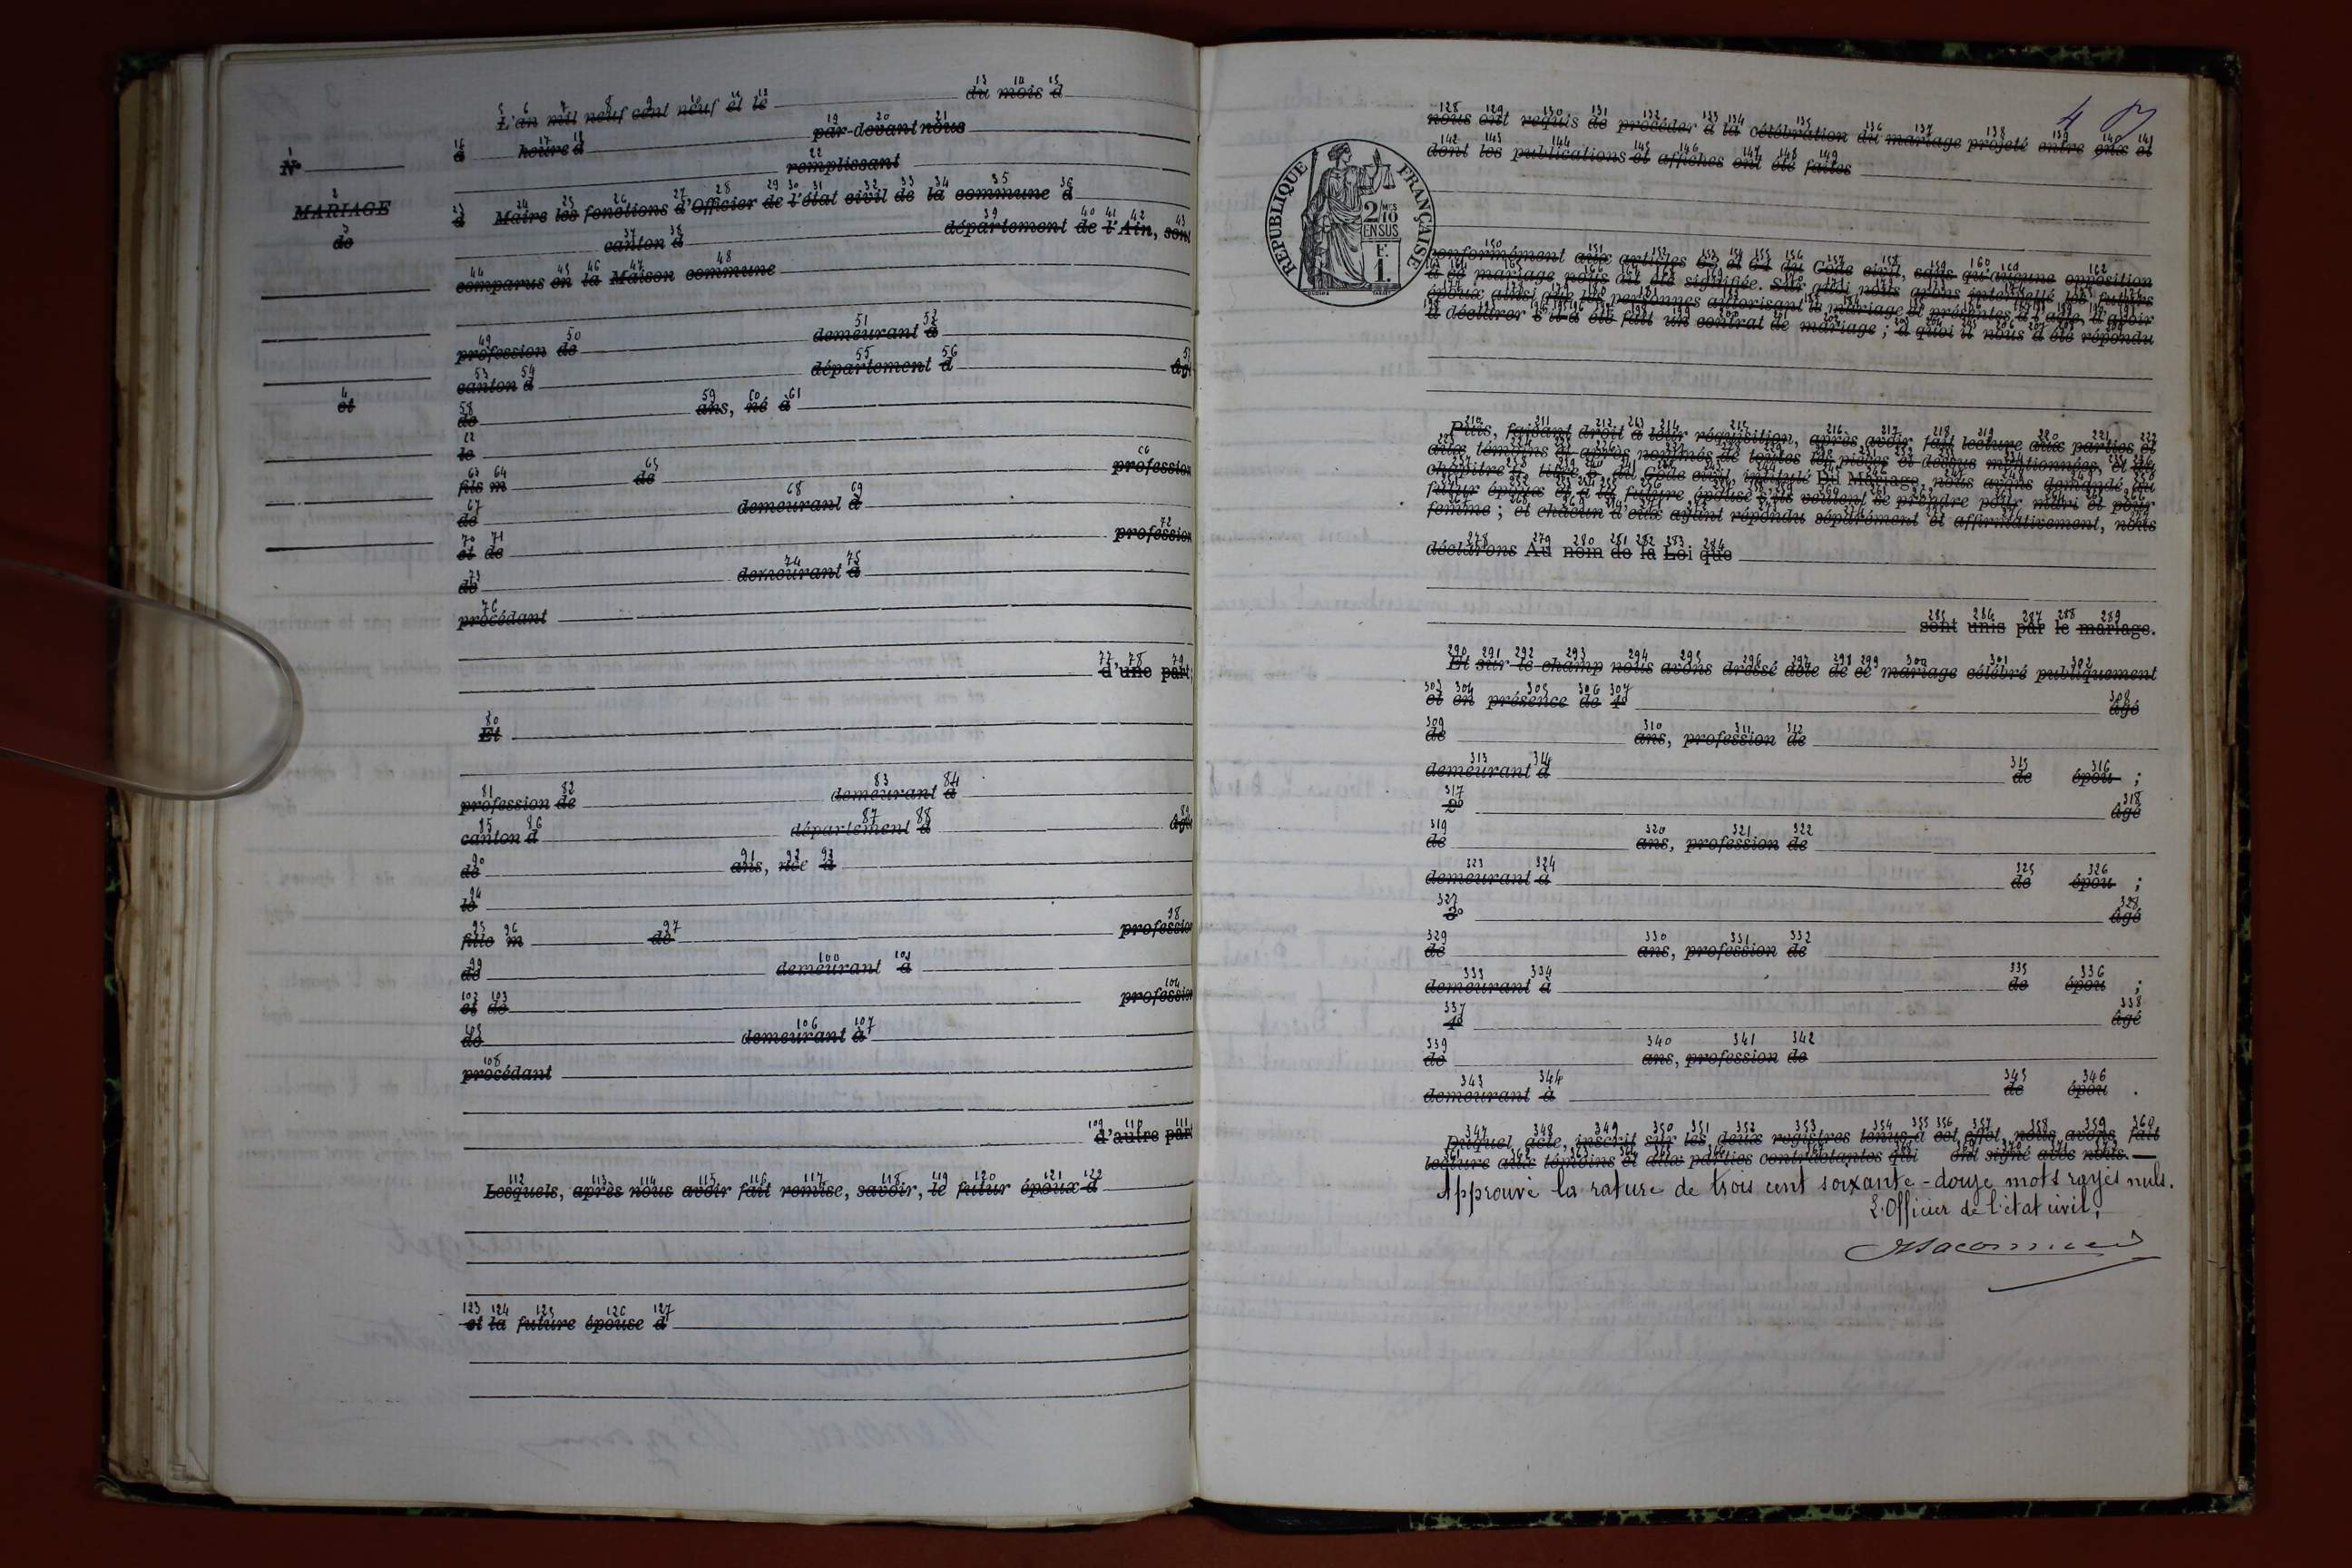 N°
MARIAGE
de
et
L'an mil neuf cent neuf et le du mois d
à heure d par-devant nous
remplissant
à Maire les fonctions d'Officier de l'état civil de la commune d
canton d département de l'Ain, sont
comparus en la Maison commune
profession de demeurant à
canton d département d âgé
de ans, né à
le
fils m de profession
de demeurant à
et de profession
de demeurant à
procédant
d'une part;
Et
profession de demeurant à
canton d département d âgée
de ans, née à
le
fille m de profession
de demeurant à
et de profession
de demeurant à
procédant
d'autre part
Lesquels, après nous avoir fait remise, savoir, le futur époux d
et la future épouse d
4
nous ont requis de procéder à la célébration du mariage projeté entre eux et
dont les publications et affiches ont été faites
RÉPUBLIQUE FRANÇAISE
2/10
EN SUS
F.
1.
conformément aux articles 63 et 64 du Code civil, sans qu'aucune opposition
à ce mariage nous ait été signifiée. Sur quoi nous avons interpellé les futurs
époux ainsi que les personnes autorisant le mariage et présentes à l'acte, d'avoir
à déclarer s'il a été fait un contrat de mariage ; à quoi il nous a été répondu
Puis, faisant droit à leur réquisition, après avoir fait lecture aux parties et
aux témoins ci-après nommés de toutes les pièces ci-dessus mentionnées, et du
chapitre 6, titre 5, du Code civil intitulé Du Mariage, nous avons demandé au
futur époux et à la future épouse s'ils veulent se prendre pour mari et pour
femme ; et chacun d'eux ayant répondu séparément et affirmativement, nous
déclarons Au nom de la Loi que
sont unis par le mariage.
Et sur-le-champ nous avons dressé acte de ce mariage célébré publiquement
et en présence de 1° âgé
de ans, profession de
demeurant à de épou ;
2° âgé
de ans, profession de
demeurant à de épou ;
3° âgé
de ans, profession de
demeurant à de épou ;
4° âgé
de ans, profession de
demeurant à de épou .
Duquel acte, inscrit sur les deux registres tenus à cet effet, nous avons fait
lecture aux témoins et aux parties contractantes qui ont signé avec nous.
Approuvé la rature de trois cent soixante-douze mots rayés nuls.
L'Officier de l'état civil,